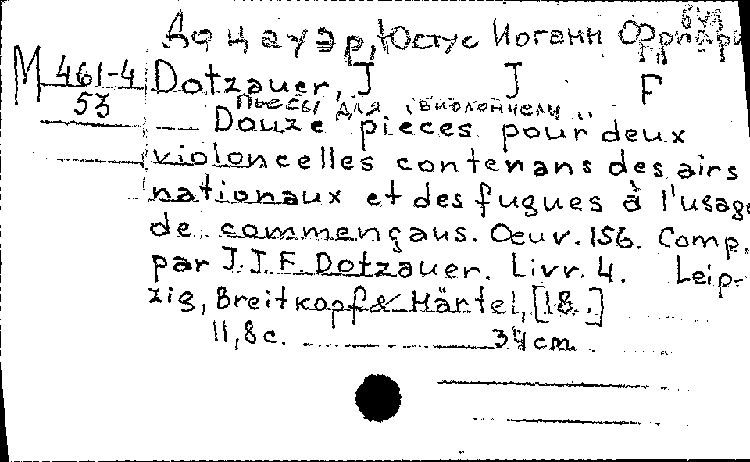 Доцауэр, Юстус Иоганн
M 461-4/53
Dotzauer, J J F
Пьесы для виолончели
Douze pieces pour deux
violoncelles contenans des airs
nationaux et des fugues à l'usage
de commençaus. Oeuv. 156. Comp.
par J. J. F. Dotzauer. Livr. 4. Leip-
zig, Breitkopf & Härtel, [18..]
11, 8 c. 34 cm.